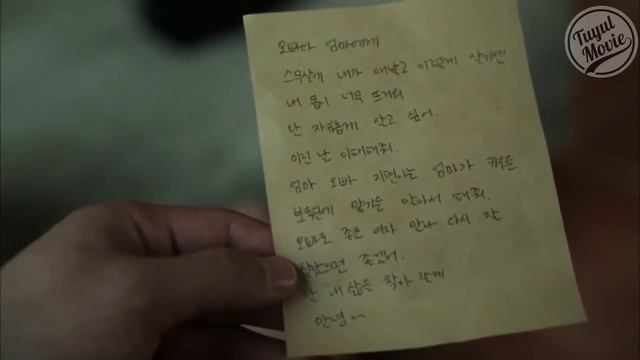 Tuyul
Movie
오빠랑 엄마에게
스무살에 내가 애낳고 이렇게 살기엔
내 몸이 너무 뜨거워
난 자유롭게 살고 싶어.
이런 난 이해해줘.
엄마, 오빠 지현이는 엄마가 키우든
보육원에 맡기든 알아서 해줘.
오빠도 좋은 여자 만나 다시 잘
살았으면 좋겠어.
난 내 삶을 찾아 갈게
안녕~